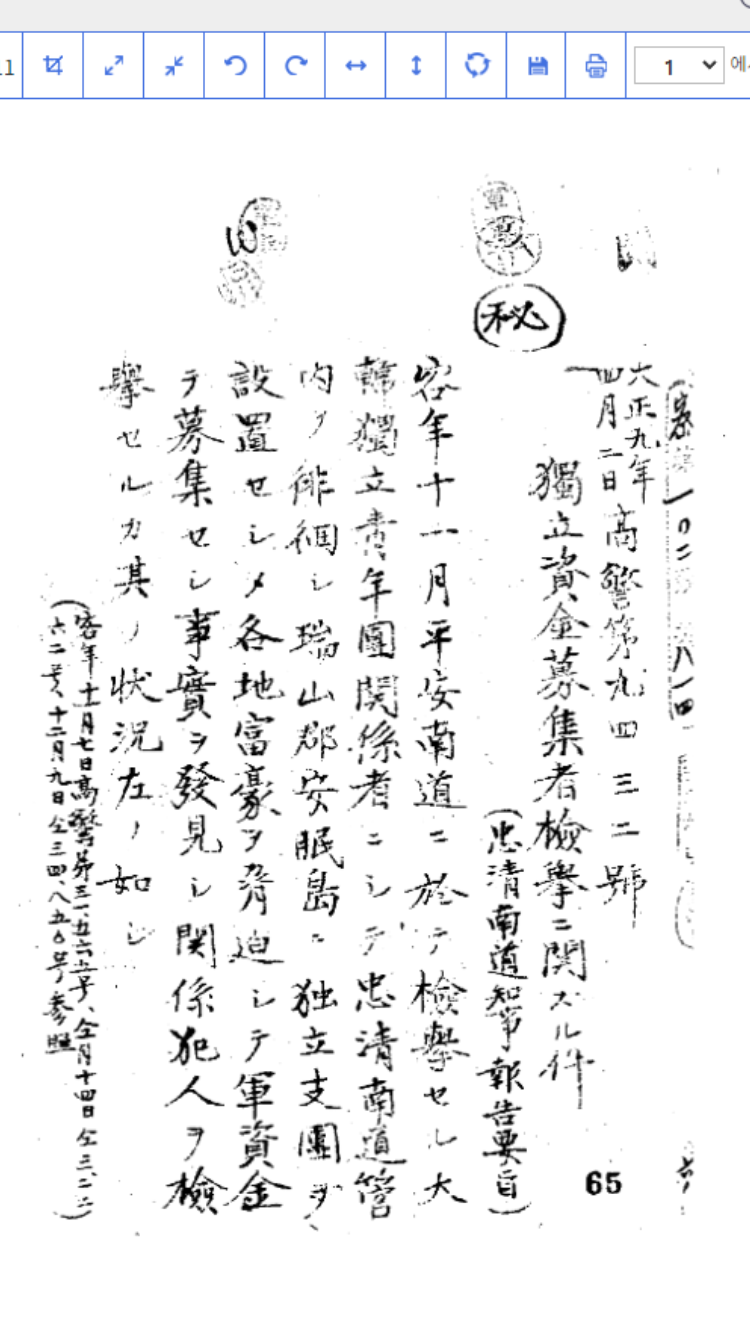 1
에
秘
大正九年
四月二日
高警第九四三二號
獨立資金募集者檢擧ニ関スル件
(忠清南道知事報告要旨)
客年十一月平安南道ニ於テ檢擧セシ大
韓獨立靑年團関係者ニシテ忠清南道管
内ヲ徘徊シ瑞山郡安眠島ニ独立支團ヲ
設置セシメ各地富豪ヲ脅迫シテ軍資金
ヲ募集セシ事實ヲ發見シ関係犯人ヲ檢
擧セルカ其ノ状況左ノ如シ
(客年十一月七日高警第三一、五六五号、仝月十四日仝三、二二
六二号、十二月九日仝三四、八五〇号参照)
65